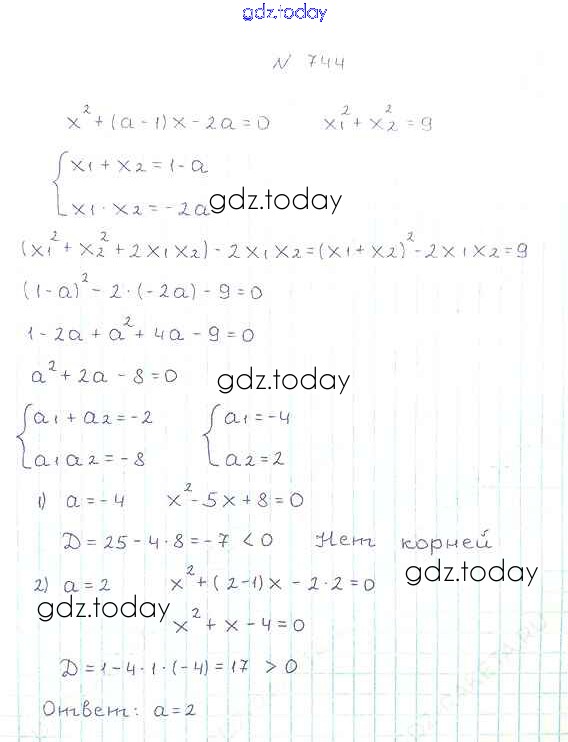 gdz.today
N 744
x² + (a - 1)x - 2a = 0 x₁² + x₂² = 9
x₁ + x₂ = 1 - a
x₁ · x₂ = - 2a
gdz.today
(x₁² + x₂² + 2x₁x₂) - 2x₁x₂ = (x₁ + x₂)² - 2x₁x₂ = 9
(1 - a)² - 2 · (-2a) - 9 = 0
1 - 2a + a² + 4a - 9 = 0
a² + 2a - 8 = 0
gdz.today
a₁ + a₂ = -2 a₁ = -4
a₁a₂ = -8 a₂ = 2
1) a = -4 x² - 5x + 8 = 0
D = 25 - 4 · 8 = -7 < 0 Нет корней
2) a = 2 x² + (2-1)x - 2 · 2 = 0
gdz.today
gdz.today
x² + x - 4 = 0
D = 1 - 4 · 1 · (-4) = 17 > 0
Ответ: a = 2